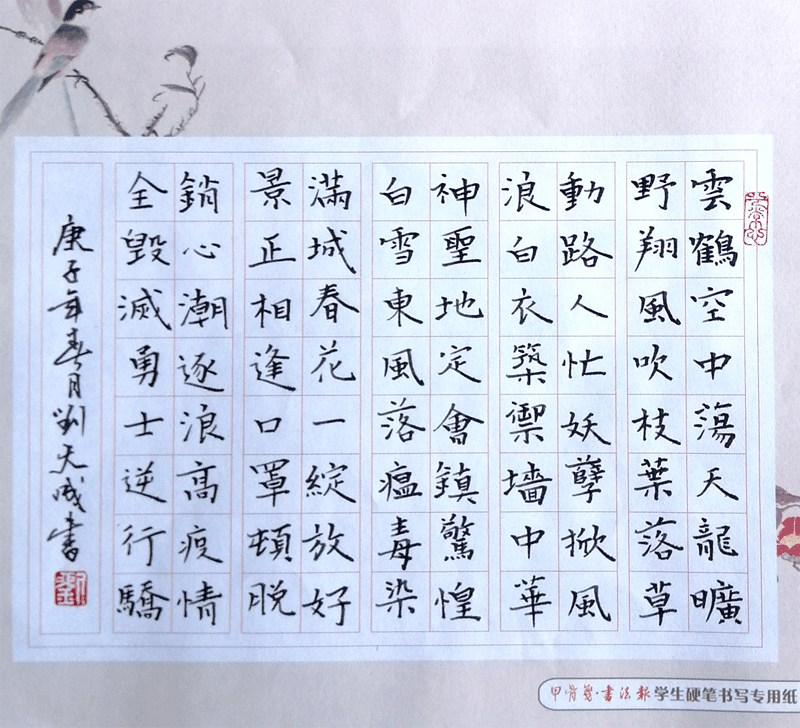 雲鶴空中蕩天龍曠
野翔風吹枝葉落草
動路人忙妖孽掀風
浪白衣築禦墻中華
神聖地定會鎮驚惶
白雪東風落瘟毒染
滿城春花一綻放好
景正相逢口罩頓脫
銷心潮逐浪高疫情
全毀滅勇士逆行驕
庚子年春月劉天成書
劉
甲骨文·书法报学生硬笔书写专用纸